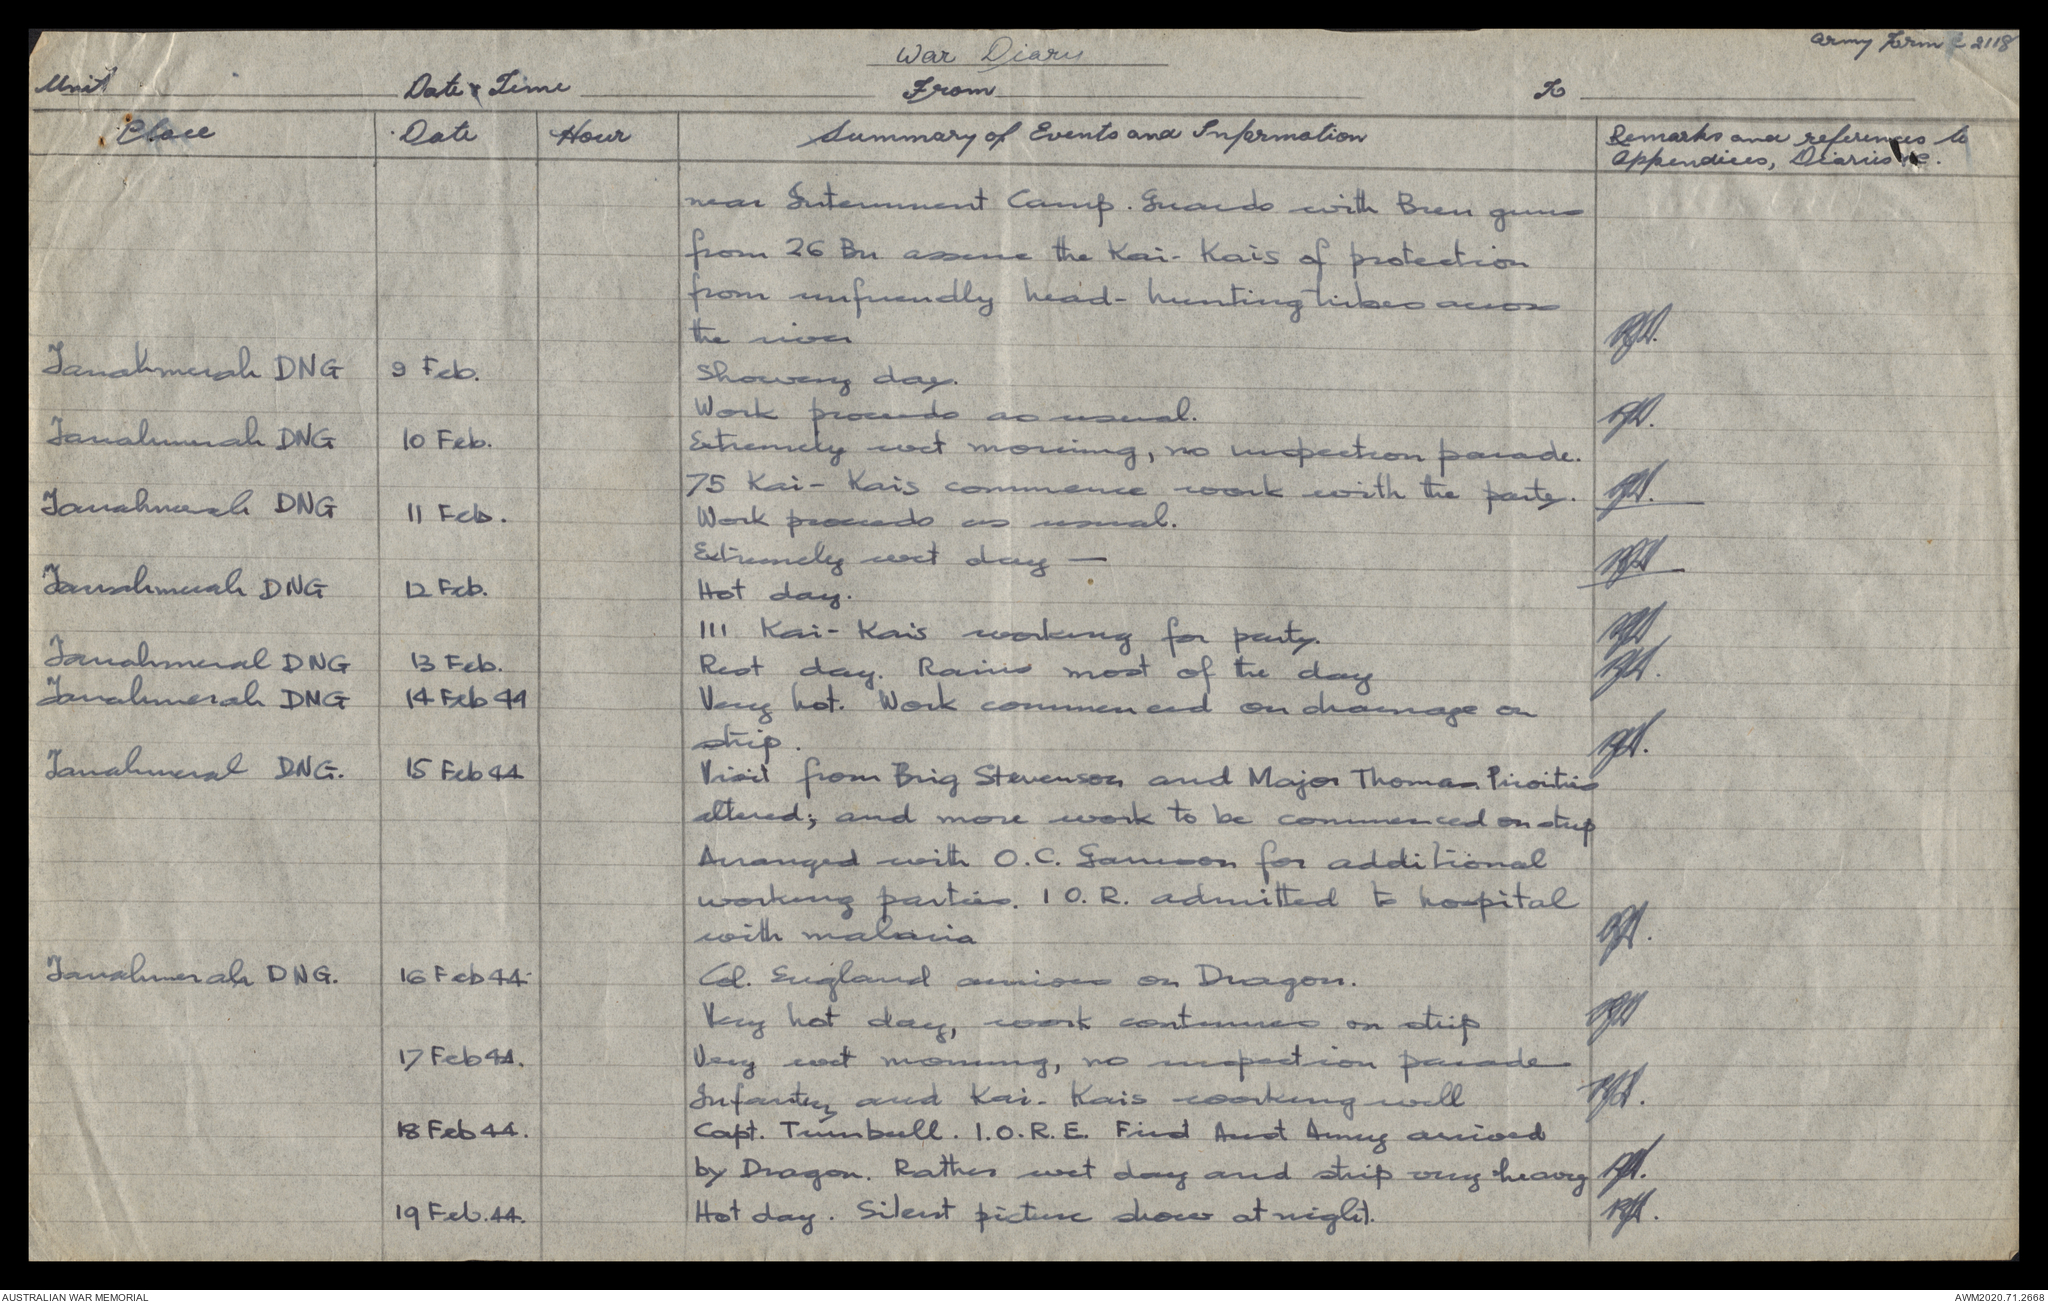 War Diary
Army Form C 2118
Unit Date & Time From To
Place Date Hour Summary of Events and Information Remarks and references to
Appendices, Diaries &c.
near Internment Camp. Guards with Bren guns
from 26 Bn assure the Kai-Kais of protection
from unfriendly head-hunting tribes across
the river
Tanahmerah DNG 9 Feb. Showery day.
Work proceeds as usual.
Tanahmerah DNG 10 Feb. Extremely wet morning, no inspection parade.
75 Kai-Kais commence work with the party.
Tanahmerah DNG 11 Feb. Work proceeds as usual.
Extremely wet day —
Tanahmerah DNG 12 Feb. Hot day.
111 Kai-Kais working for party.
Tanahmerah DNG 13 Feb. Rest day. Rains most of the day
Tanahmerah DNG 14 Feb 44 Very hot. Work commenced on drainage on
strip.
Tanahmerah DNG. 15 Feb 44 Visit from Brig Stevenson and Major Thomas Priorities
altered; and more work to be commenced on strip
Arranged with O.C. Garrison for additional
working parties. 1 O.R. admitted to hospital
with malaria
Tanahmerah DNG. 16 Feb 44 Col. England arrives on Dragon.
Very hot day, work continues on strip
17 Feb 44. Very wet morning, no inspection parade
Infantry and Kai-Kais working well
18 Feb 44. Capt. Turnbull. I.O.R.E. First Aust Army arrived
by Dragon. Rather wet day and strip very heavy
19 Feb. 44. Hot day. Silent picture show at night.
AUSTRALIAN WAR MEMORIAL AWM2020.71.2668